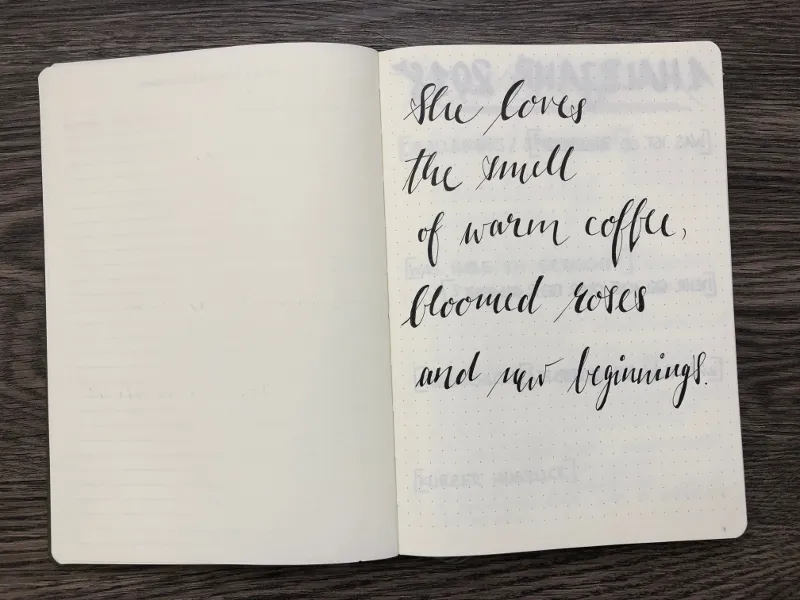 She loves
the smell
of warm coffee,
bloomed roses
and new beginnings.